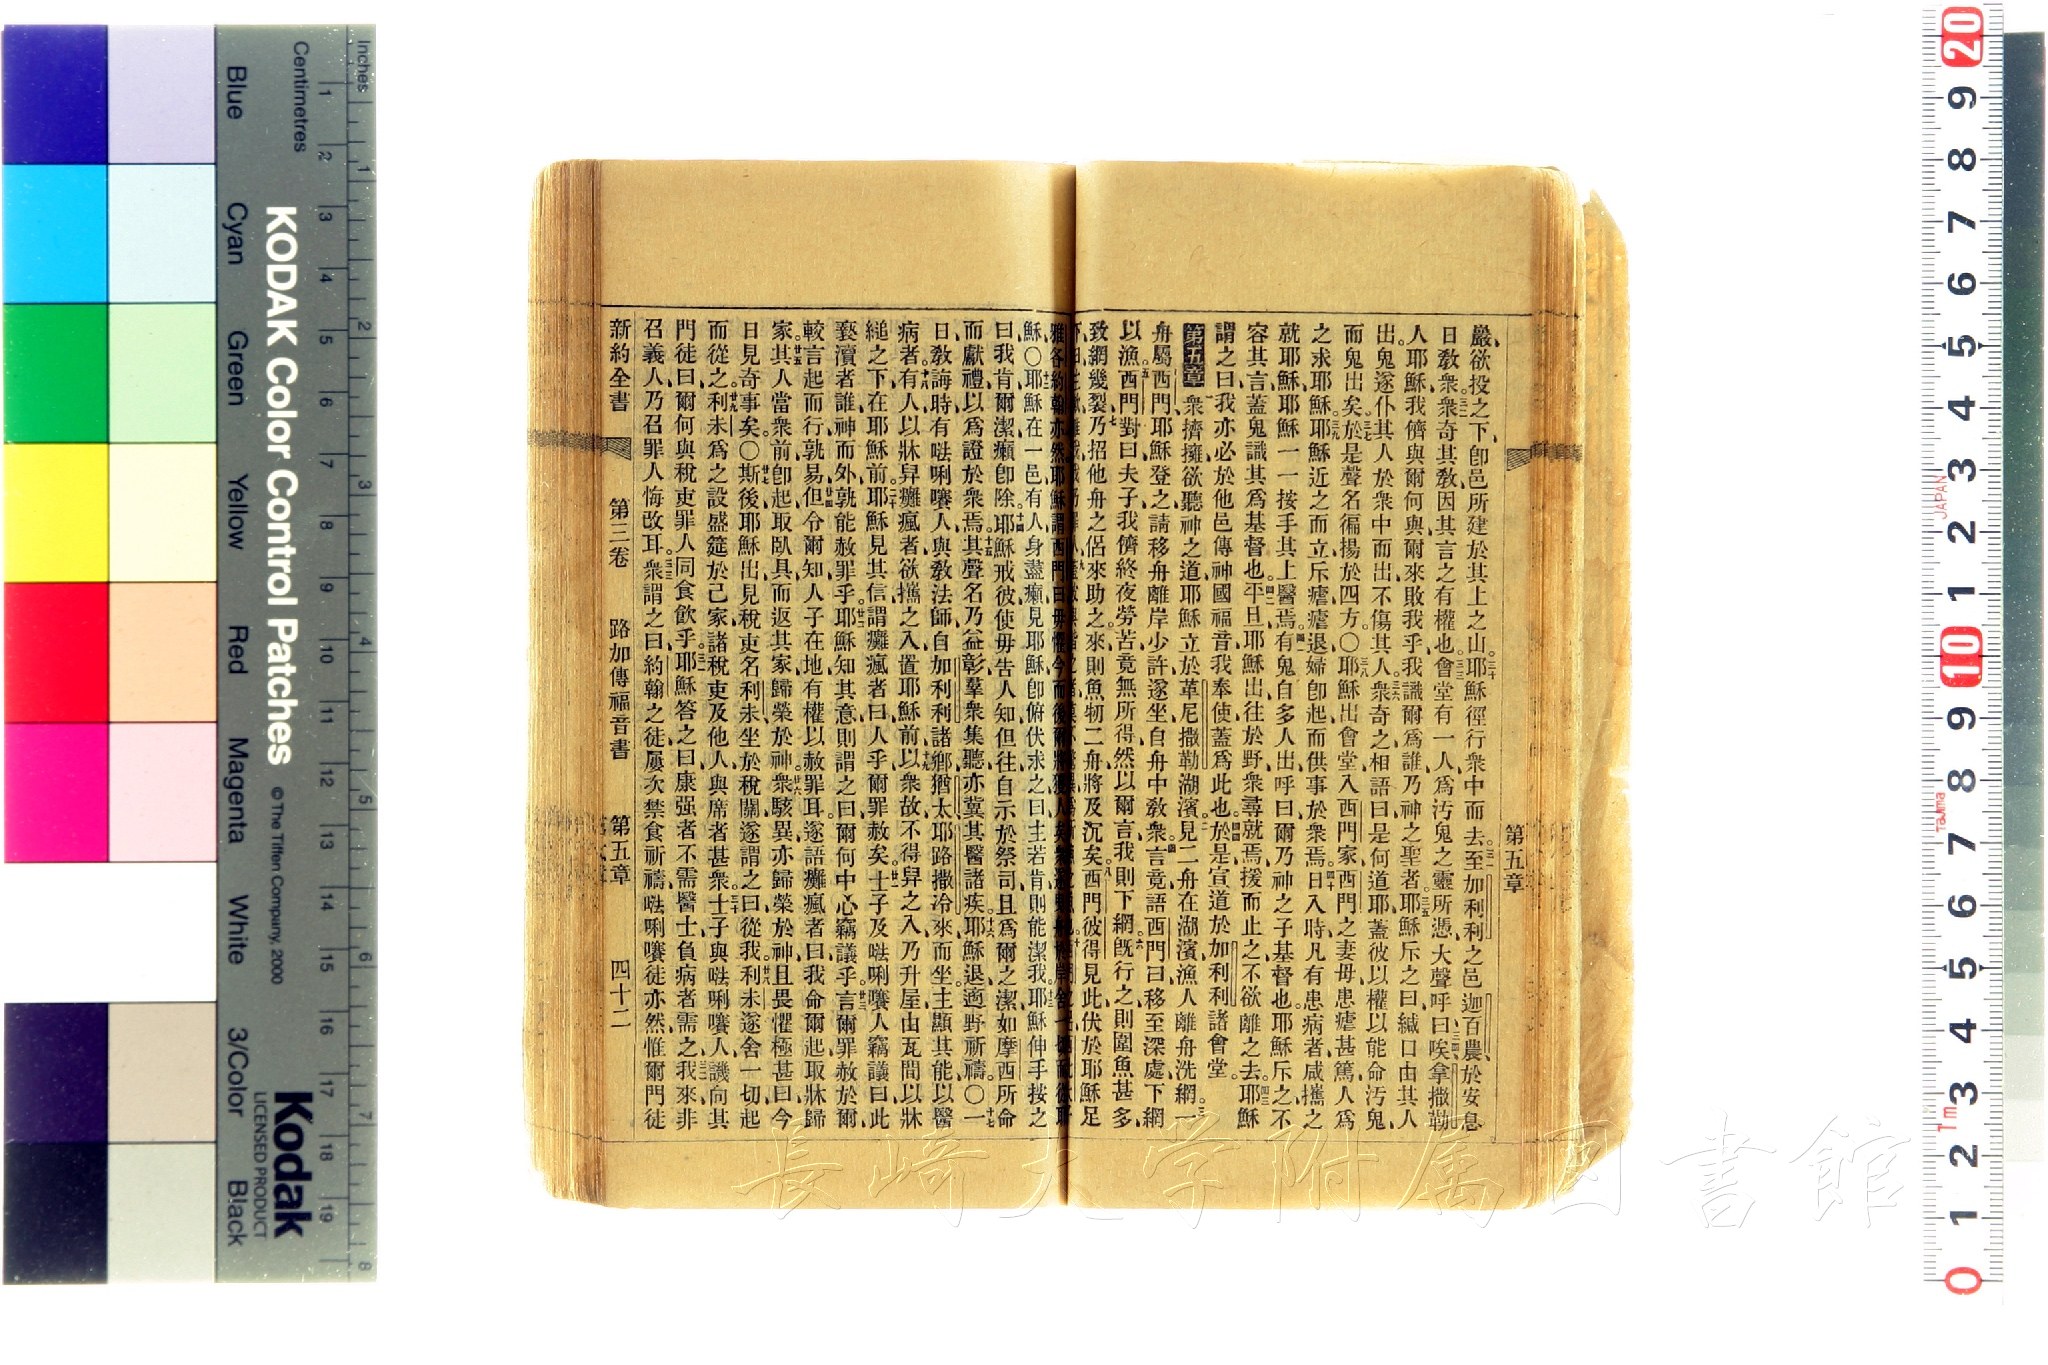 第五章
巖、欲投之下、卽邑所建於其上之山。耶穌徑行衆中而去。至加利利之邑迦百農、於安息
日敎衆、衆奇其敎、因其言之有權也。會堂有一人、爲汚鬼之靈所憑、大聲呼曰、唉、拿撒勒
人耶穌、我儕與爾何與、爾來敗我乎、我識爾爲誰、乃神之聖者、耶穌斥之曰、緘口、由其人
出、鬼遂仆其人於衆中而出、不傷其人。衆奇之、相語曰、是何道耶、蓋彼以權以能命汚鬼、
而鬼出矣。於是聲名徧揚於四方。〇耶穌出會堂、入西門家、西門之妻母患瘧甚篤、人爲
之求耶穌、耶穌近之而立、斥瘧、瘧退、婦卽起而供事於衆焉、日入時、凡有患病者、咸攜之
就耶穌、耶穌一一按手其上醫焉。有鬼自多人出、呼曰、爾乃神之子基督也。耶穌斥之、不
容其言、蓋鬼識其爲基督也。平旦、耶穌出、往於野、衆尋就焉、援而止之、不欲離之去、耶穌
謂之曰、我亦必於他邑傳神國福音、我奉使蓋爲此也。於是宣道於加利利諸會堂。
第五章 衆擠擁欲聽神之道、耶穌立於革尼撒勒湖濱、見二舟在湖濱、漁人離舟洗網、一
舟屬西門、耶穌登之、請移舟離岸少許、遂坐、自舟中敎衆。言竟、語西門曰、移至深處、下網
以漁、西門對曰、夫子、我儕終夜勞苦、竟無所得、然以爾言、我則下網、旣行之、則圍魚甚多、
致網幾裂、乃招他舟之侶來助、之來、則魚牣二舟、將及沉矣。西門彼得見此、伏於耶穌足
雅各約翰亦然、耶穌謂西門曰、毋懼、今而後爾將獲人矣
穌、〇耶穌在一邑、有人身盡癩、見耶穌、卽俯伏求之曰、主若肯、則能潔我、耶穌伸手按之
曰、我肯、爾潔、癩卽除、耶穌戒彼、使毋告人知、但往自示於祭司、且爲爾之潔、如摩西所命
而獻禮、以爲證於衆焉。其聲名乃益彰、羣衆集聽、亦冀其醫諸疾、耶穌退適野祈禱。〇一
日敎誨時、有𠵽唎嚷人、與敎法師、自加利利諸鄉、猶太、耶路撒冷來而坐、主顯其能以醫
病者。有人以牀舁癱瘋者、欲攜之入、置耶穌前、以衆故、不得舁之入、乃升屋、由瓦間以牀
縋之下、在耶穌前、耶穌見其信、謂癱瘋者曰、人乎、爾罪赦矣。士子及𠵽唎嚷人竊議曰、此
褻瀆者誰、神而外、孰能赦罪乎、耶穌知其意、則謂之曰、爾何中心竊議乎、言爾罪赦、於爾
較言起而行孰易、但令爾知人子在地有權以赦罪耳、遂語癱瘋者曰、我命爾起、取牀歸
家、其人當衆前、卽起取臥具而返其家、歸榮於神、衆駭異、亦歸榮於神、且畏懼極甚曰、今
日見奇事矣。〇斯後耶穌出、見稅吏名利未、坐於稅關、遂謂之曰、從我、利未遂舍一切、起
而從之。利未爲之設盛筵於己家、諸稅吏及他人與席者甚衆、士子與𠵽唎嚷人譏向其
門徒曰、爾何與稅吏罪人同食飲乎、耶穌答之曰、康强者不需醫士、負病者需之、我來非
召義人、乃召罪人悔改耳。衆謂之曰、約翰之徒、屢次禁食祈禱、𠵽唎嚷徒亦然、惟爾門徒
新約全書 第三卷 路加傳福音書 第五章 四十二
長崎大学附属図書館
Inches
Centimetres
Blue Cyan Green Yellow Red Magenta White 3/Color Black
KODAK Color Control Patches © The Tiffen Company, 2000
Kodak
LICENSED PRODUCT
1 2 3 4 5 6 7 8 9 10 11 12 13 14 15 16 17 18 19
1 2 3 4 5 6 7 8
20 9 8 7 6 5 4 3 2 1 10 9 8 7 6 5 4 3 2 1 0
JAPAN
Tajima
Tm